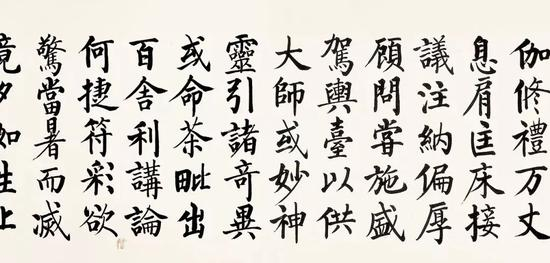 伽修禮万丈
息肩匡床接
議注納偏厚
顧問甞施盛
駕輿臺以供
大師或妙神
靈引諸奇異
或命茶毗出
百舍利講論
何捷符彩欲
驚當暑而滅
竟夕如生